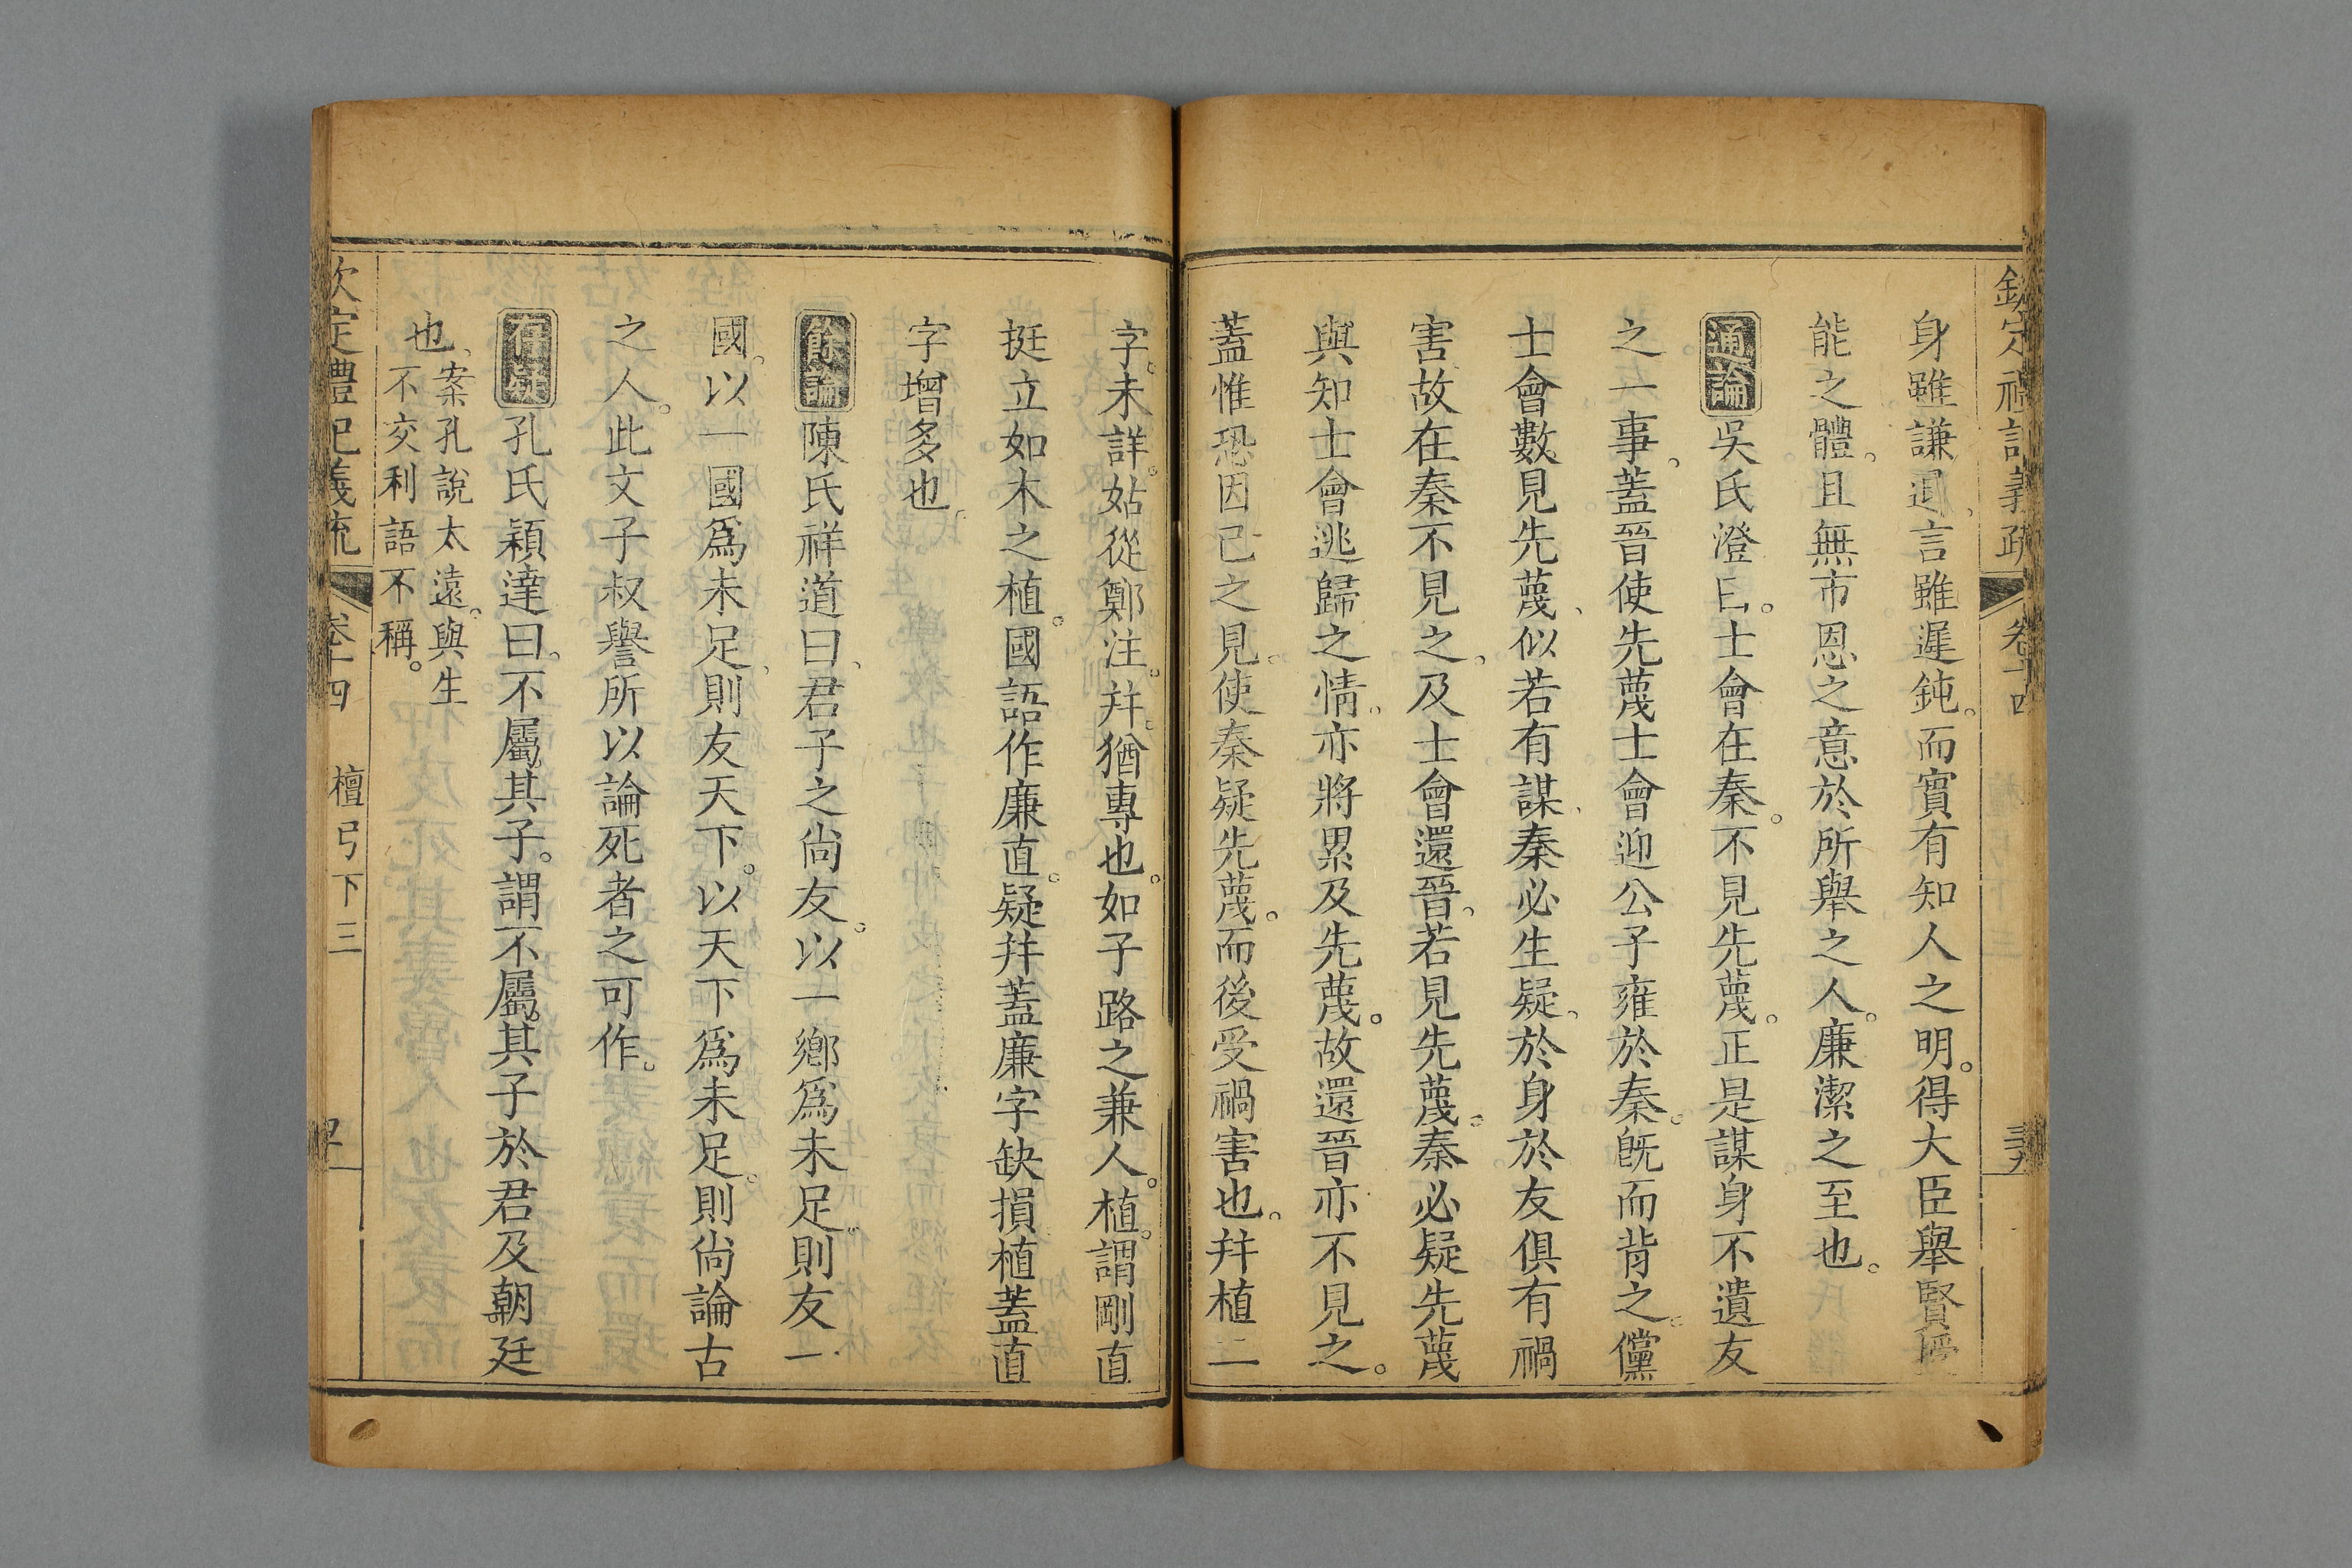 欽定禮記義疏 卷十四
身雖謙退、言雖遲鈍。而實有知人之明。得大臣舉賢
能之體。且無市恩之意於所舉之人。廉潔之至也。
通論 吳氏澄曰。士會在秦。不見先蔑。正是謀身不遺友
之一事。蓋晉使先蔑士會迎公子雍於秦。既而背之。儻
士會數見先蔑、似若有謀、秦必生疑、於身於友俱有禍
害故在秦不見之。及士會還晉。若見先蔑。秦必疑先蔑
與知士會逃歸之情。亦將累及先蔑。故還晉亦不見之。
蓋惟恐因己之見。使秦疑先蔑。而後受禍害也。幷植二
字。未詳。姑從鄭注。幷。猶專也。如子路之兼人。植。謂剛直
挺立如木之植。國語作廉直。疑幷蓋廉字缺損植蓋直
字增多也。
餘論 陳氏祥道曰、君子之尙友。以一鄉爲未足。則友一
國。以一國爲未足、則友天下。以天下爲未足。則尙論古
之人。此文子叔譽所以論死者之可作。
存疑 孔氏穎達曰。不屬其子。謂不屬其子於君及朝廷
也、案孔說太遠。與生
不交利語不稱。
欽定禮記義疏 卷十四 檀弓下三